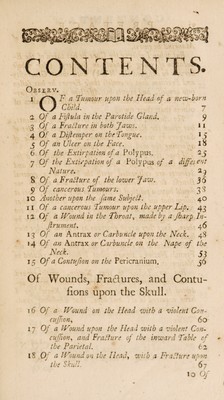 CONTENTS.
OBSERV.
1 OF a Tumour upon the Head of a new-born
Child. 7
2 Of a Fistula in the Parotide Gland, 9
3 Of a Fracture in both Jaws. 11
4 Of a Distemper on the Tongue. 15
5 Of an Ulcer on the Face. 18
6 Of the Extirpation of a Polypus. 25
7 Of the Extirpation of a Polypus of a different
Nature. 29
8 Of a Fracture of the lower Jaw. 36
9 Of cancerous Tumours. 38
10 Another upon the same Subject. 40
11 Of a cancerous Tumour upon the upper Lip. 43
12 Of a Wound in the Throat, made by a sharp In-
strument. 46
13 Of an Antrax or Carbuncle upon the Neck. 48
14 Of an Antrax or Carbuncle on the Nape of the
Neck. 53
15 Of a Contusion on the Pericranium, 56
Of Wounds, Fractures, and Contu-
sions upon the Skull.
16 Of a Wound on the Head with a violent Con-
cussion, 60
17 Of a Wound upon the Head with a violent Con-
cussion, and Fracture of the inward Table of
the Parietal. 62
18 Of a Wound on the Head, with a Fracture upon
the Skull. 67
10 Of